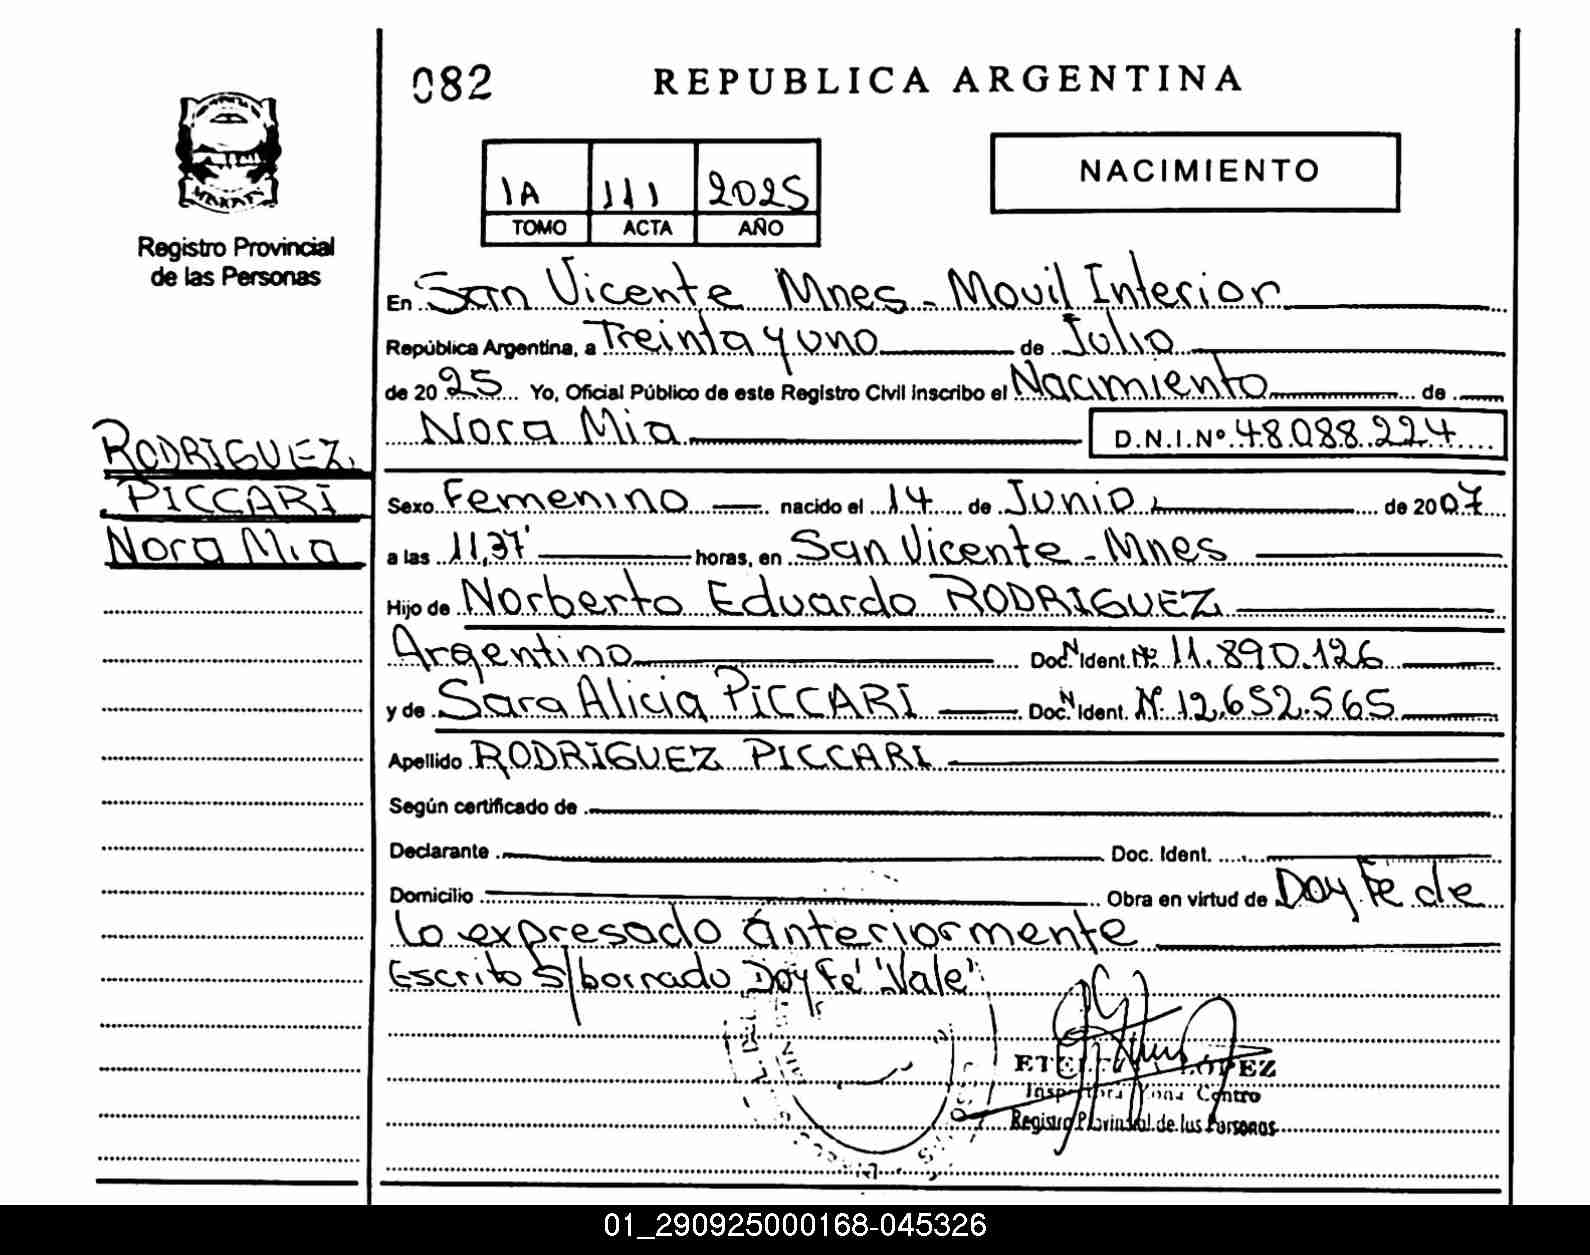 082
REPUBLICA ARGENTINA
1A 111 2025
TOMO ACTA AÑO
NACIMIENTO
Registro Provincial
de las Personas
En San Vicente Mnes - Movil Interior
República Argentina, a Treinta y uno de Julio
de 2025 Yo, Oficial Público de este Registro Civil inscribo el Nacimiento de
Nora Mia D.N.I.Nº 48.088.224
RODRIGUEZ
PICCARI
Nora Mia
Sexo Femenino nacido el 14 de Junio de 2007
a las 11,37' horas, en San Vicente - Mnes
Hijo de Norberto Eduardo RODRIGUEZ
Argentino Doc. N Ident. Nº 11.890.126
y de Sara Alicia PICCARI Doc. N Ident. Nº 12,652.565
Apellido RODRIGUEZ PICCARI
Según certificado de
Declarante Doc. Ident.
Domicilio Obra en virtud de Doy Fe de
lo expresado anteriormente
Escrito s/borrado Doy Fe "Vale"
LOPEZ
Inspectora Zona Centro
Registro Provincial de las Personas
01_290925000168-045326